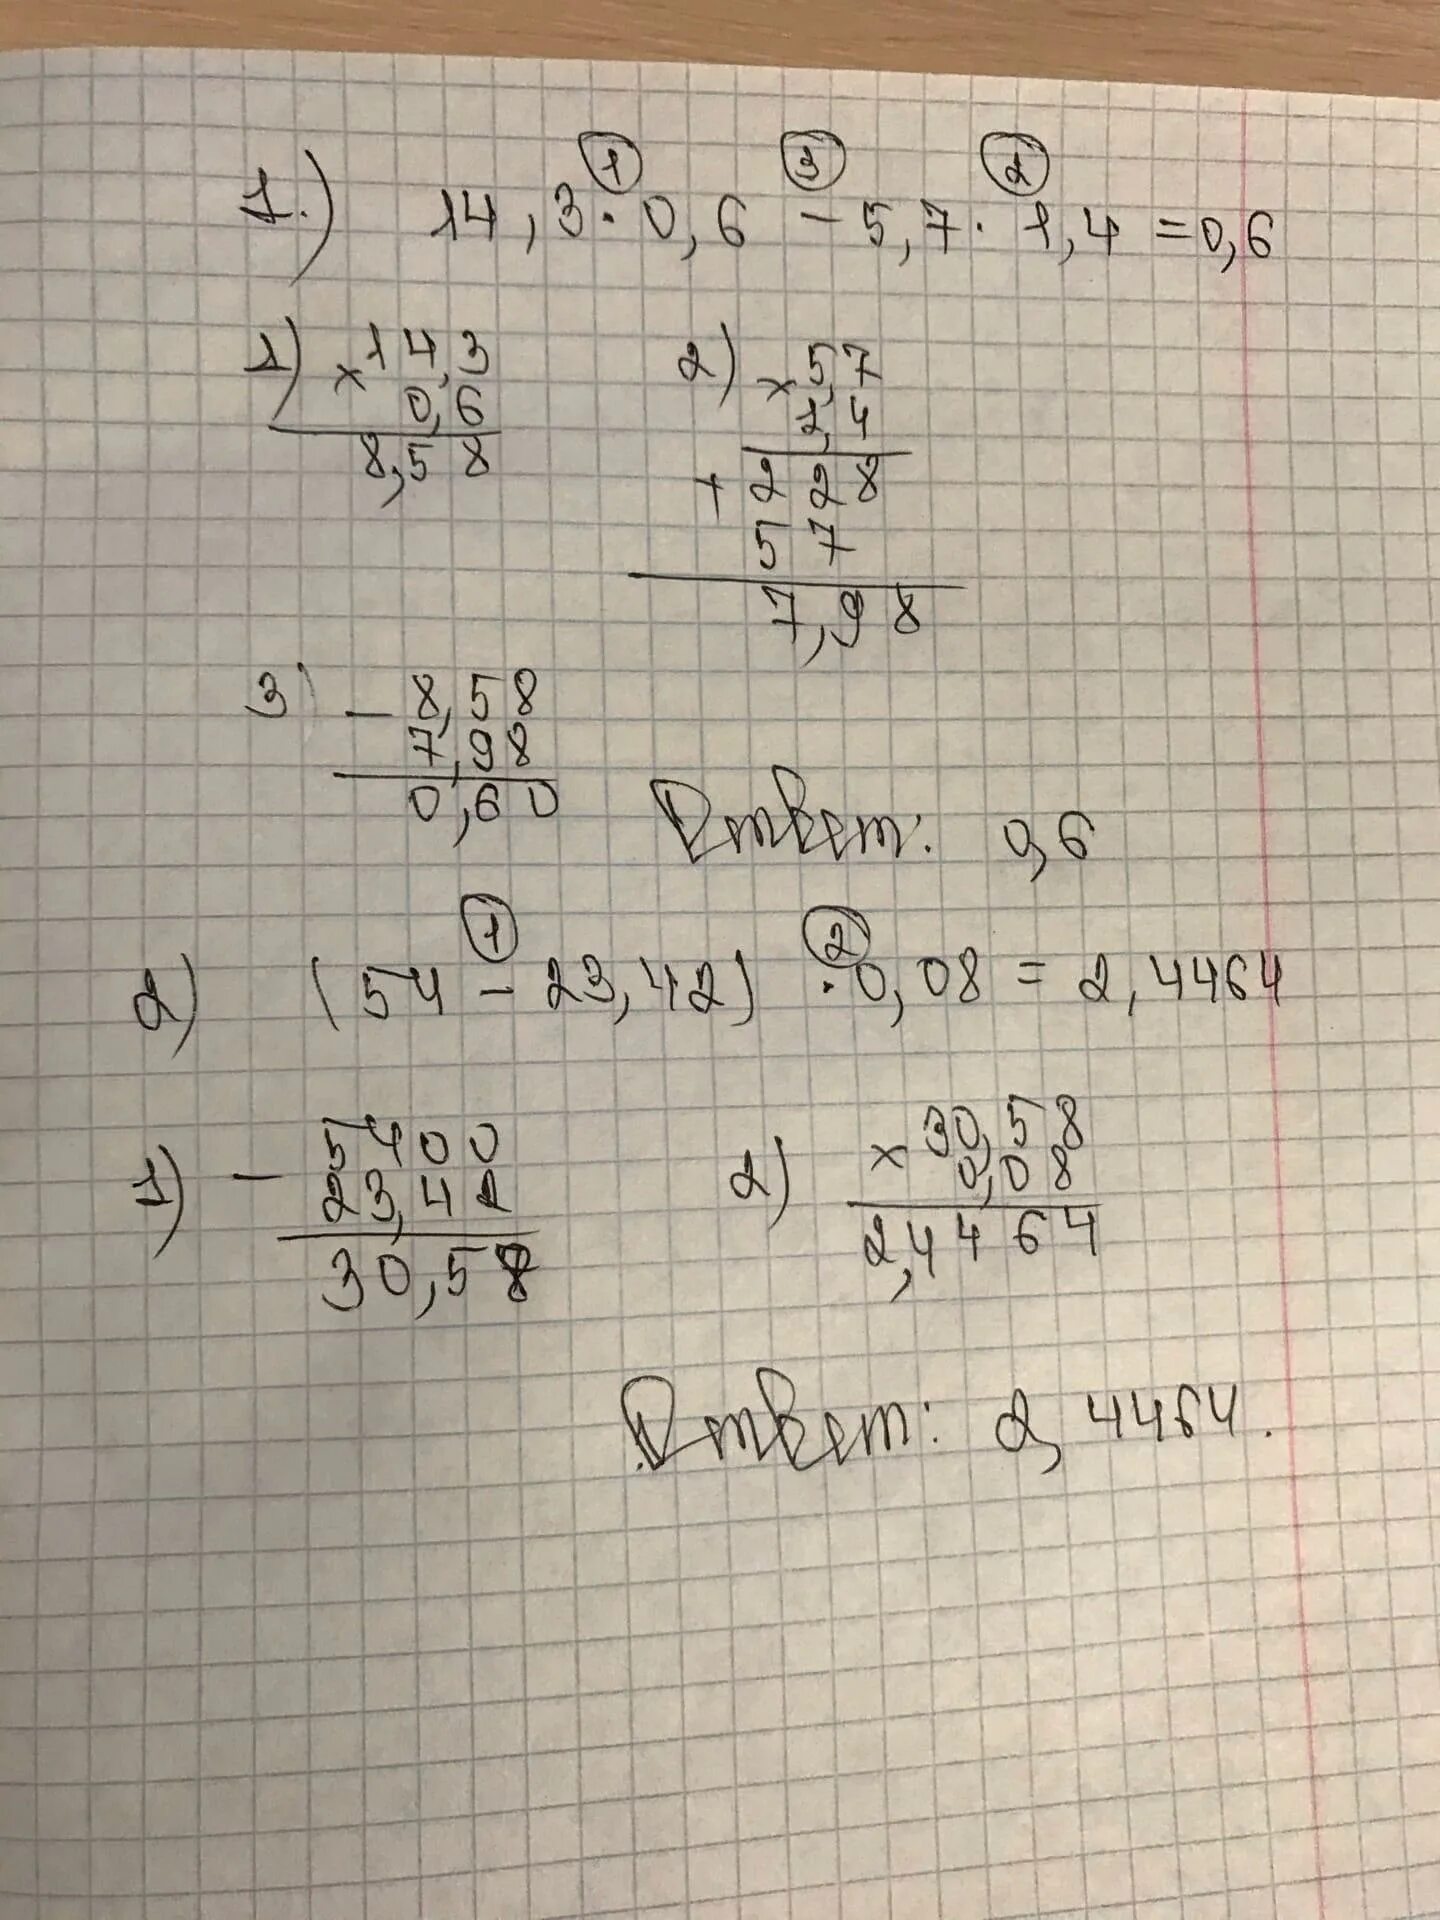 ① ③ 2
1.) 14,3 · 0,6 - 5,7 · 1,4 = 0,6
1) × 14,3 2) × 5,7
0,6 1,4
8,58 + 228
57
7,98
3) - 8,58
7,98
0,60
Ответ: 0,6
① ②
2) (54 - 23,42) · 0,08 = 2,4464
1) - 5400 2) × 30,58
23,42 0,08
30,58 2,4464
Ответ: 2,4464.